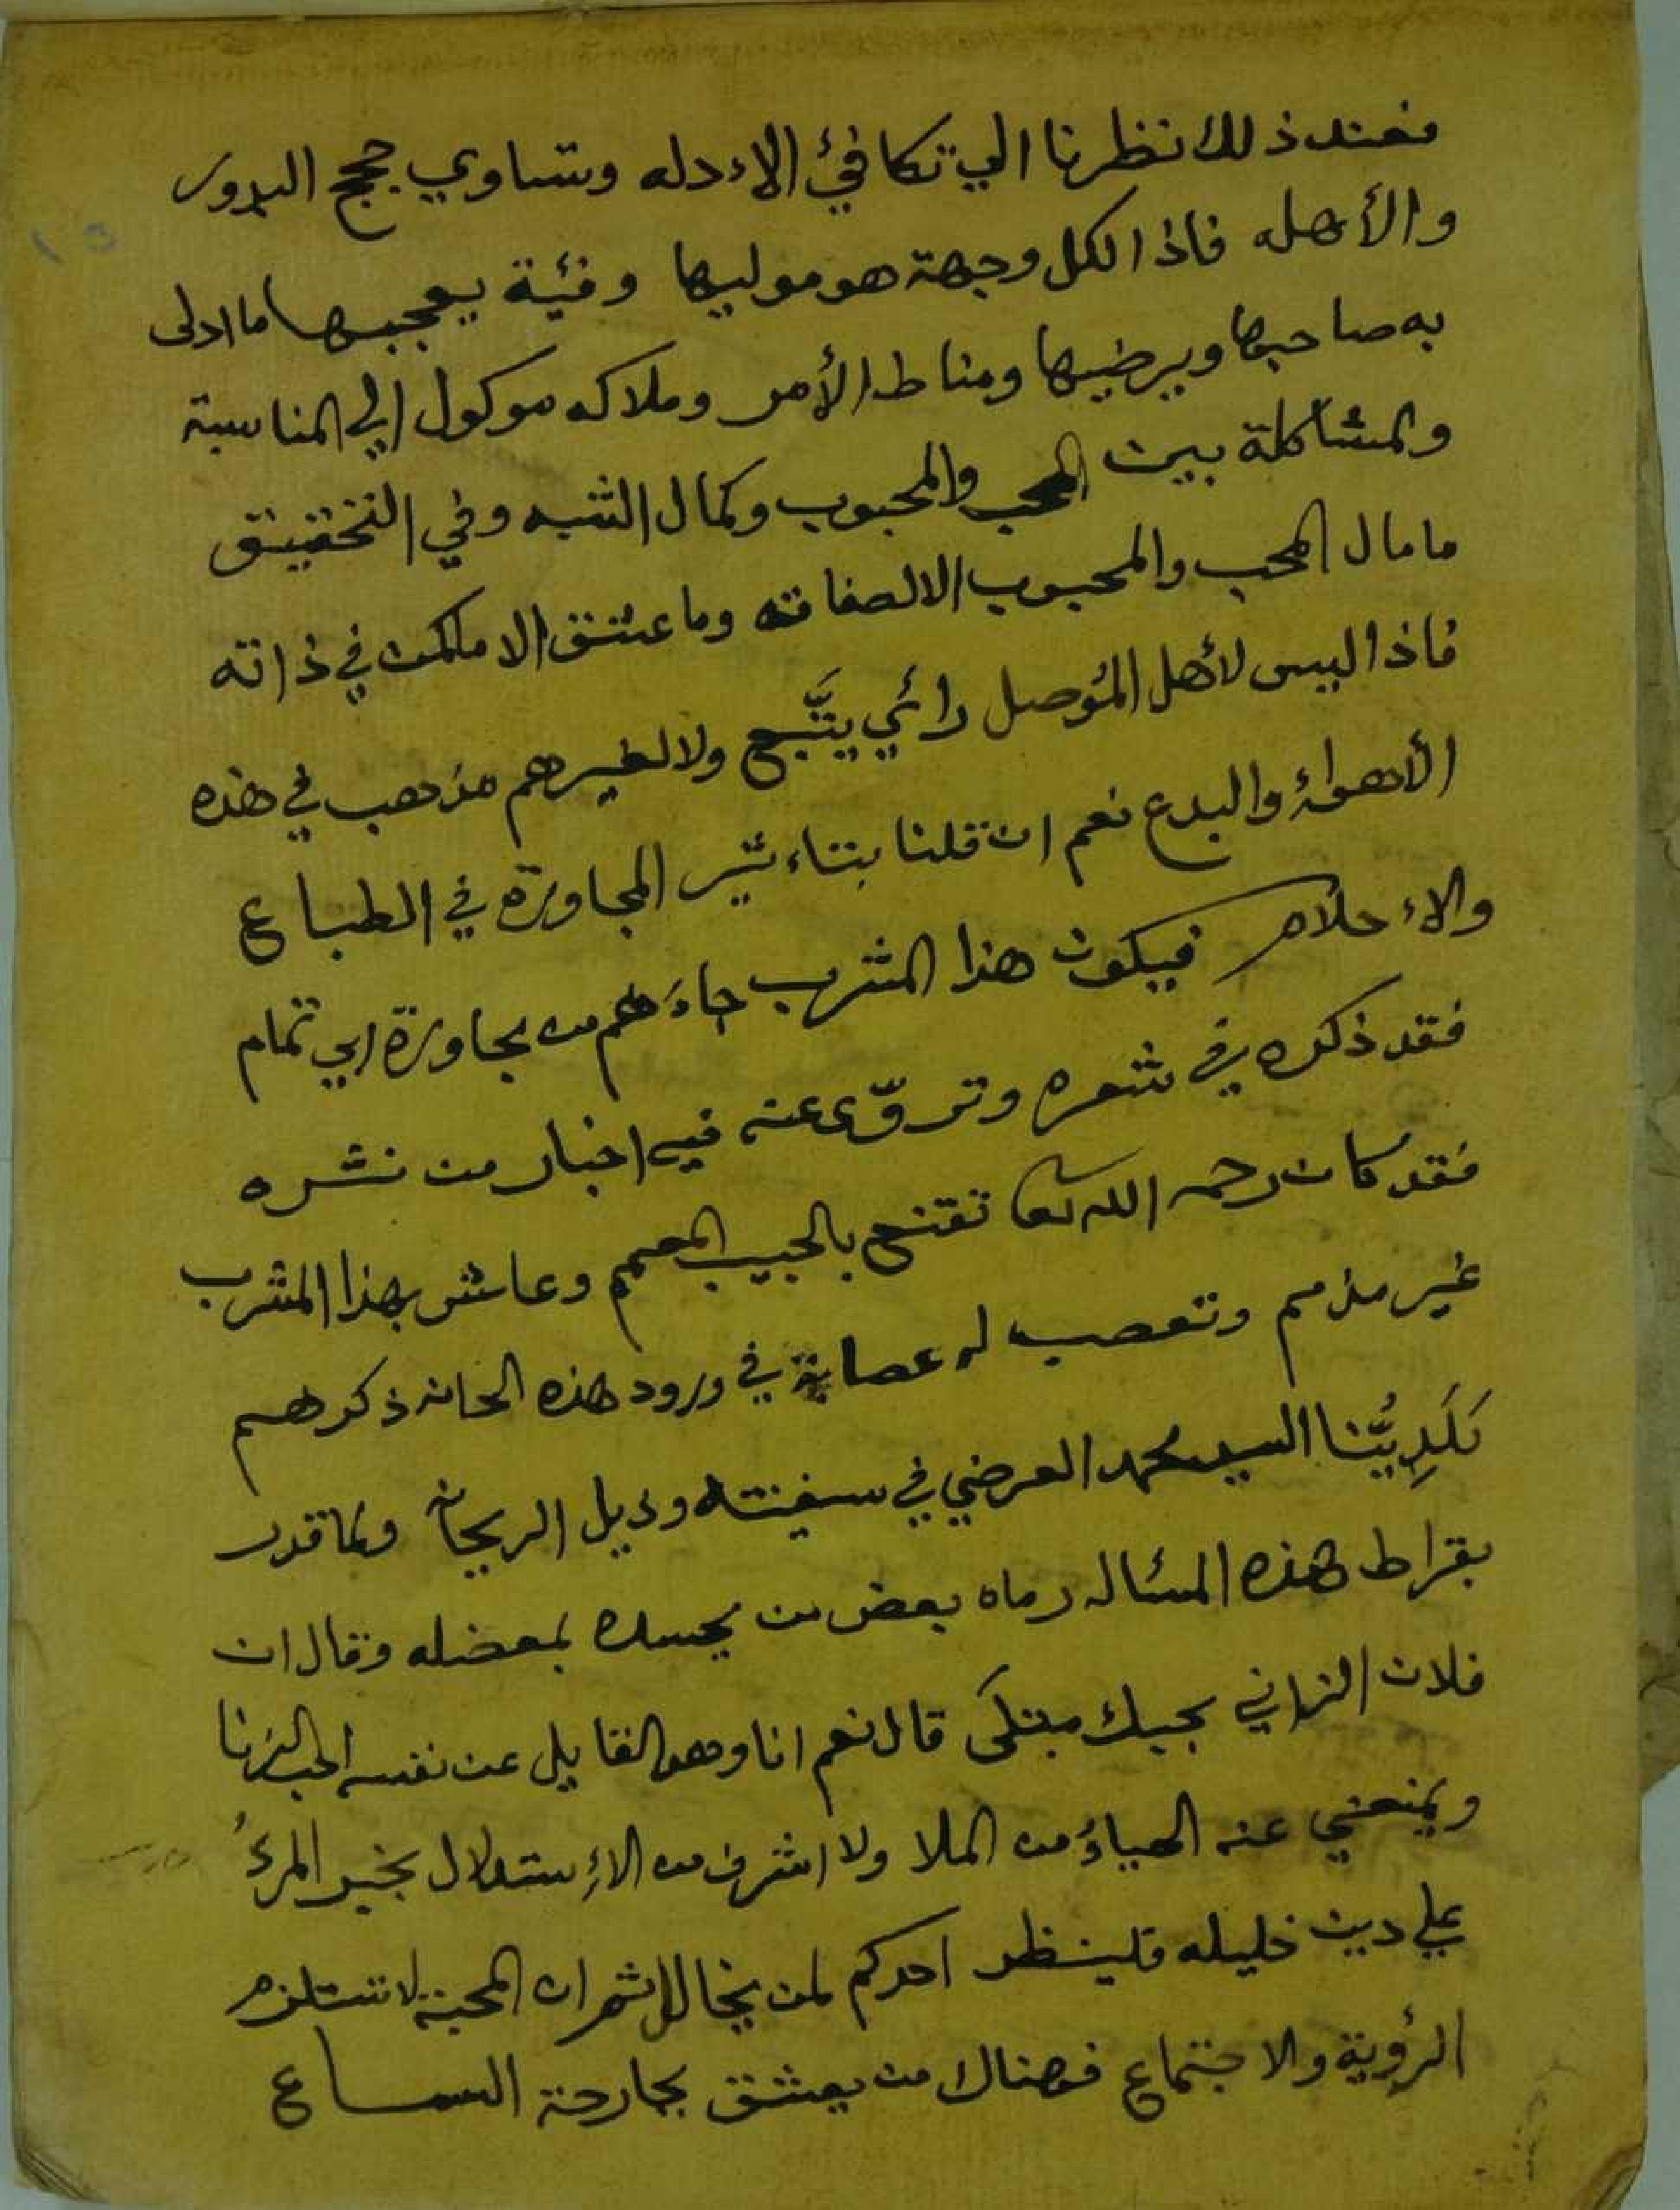 فعند ذلك نظرنا الي تكافئ الاءدله وتساوي حجج البدور
والأهله فاذا لكل وجهة هو موليها وفئية يعجبها ما ادلى
به صاحبها ويرضيها ومناط الأمر وملاكه موكول الي المناسبة
والمشاكلة بين المحب والمحبوب وكمال الشبه وفي التحقيق
ما مال المحب والمحبوب الا لصفاته وما عشق الا ما كمن في ذاته
فاذا ليس لأهل المُوصل رائي يتَّبع ولا لغيرهم مذهب في هذه
الأهواء والبدع نعم ان قلنا بتاءثير المجاورة في الطباع
والاءحلام فيكون هذا المشرب جاءَهم من مجاورة ابي تمام
فقد ذكره في شعره وتروّى عنه فيه اخبار من نشره
فقد كان رحمه الله تعا تقنع بالحبيب المعمم وعاش بهذا المشرب
غير مذمم وتعصب له عصابة في ورود هذه الحانه ذكرهم
بَلَدِيُّنا السيد محمد العرضي في سفينته وذيل الريحانه ولما قدر
بقراط هذه المسئاله رماه بعض من يحسده بمعضله وقال ان
فلان الزاني بحبك مبتلَى قال نعم انا وهو القايل عن نفسه احب الزنا
ويمنعني عنه الحياؤُ من الملا ولا اشرف من الإستدلال بخبر المرءُ
علي دين خليله فلينظر احدكم لمن يخالل ثم ان المحبة لا تستلزم
الرؤية والاجتماع فهناك من يعشق بجارحة السماع